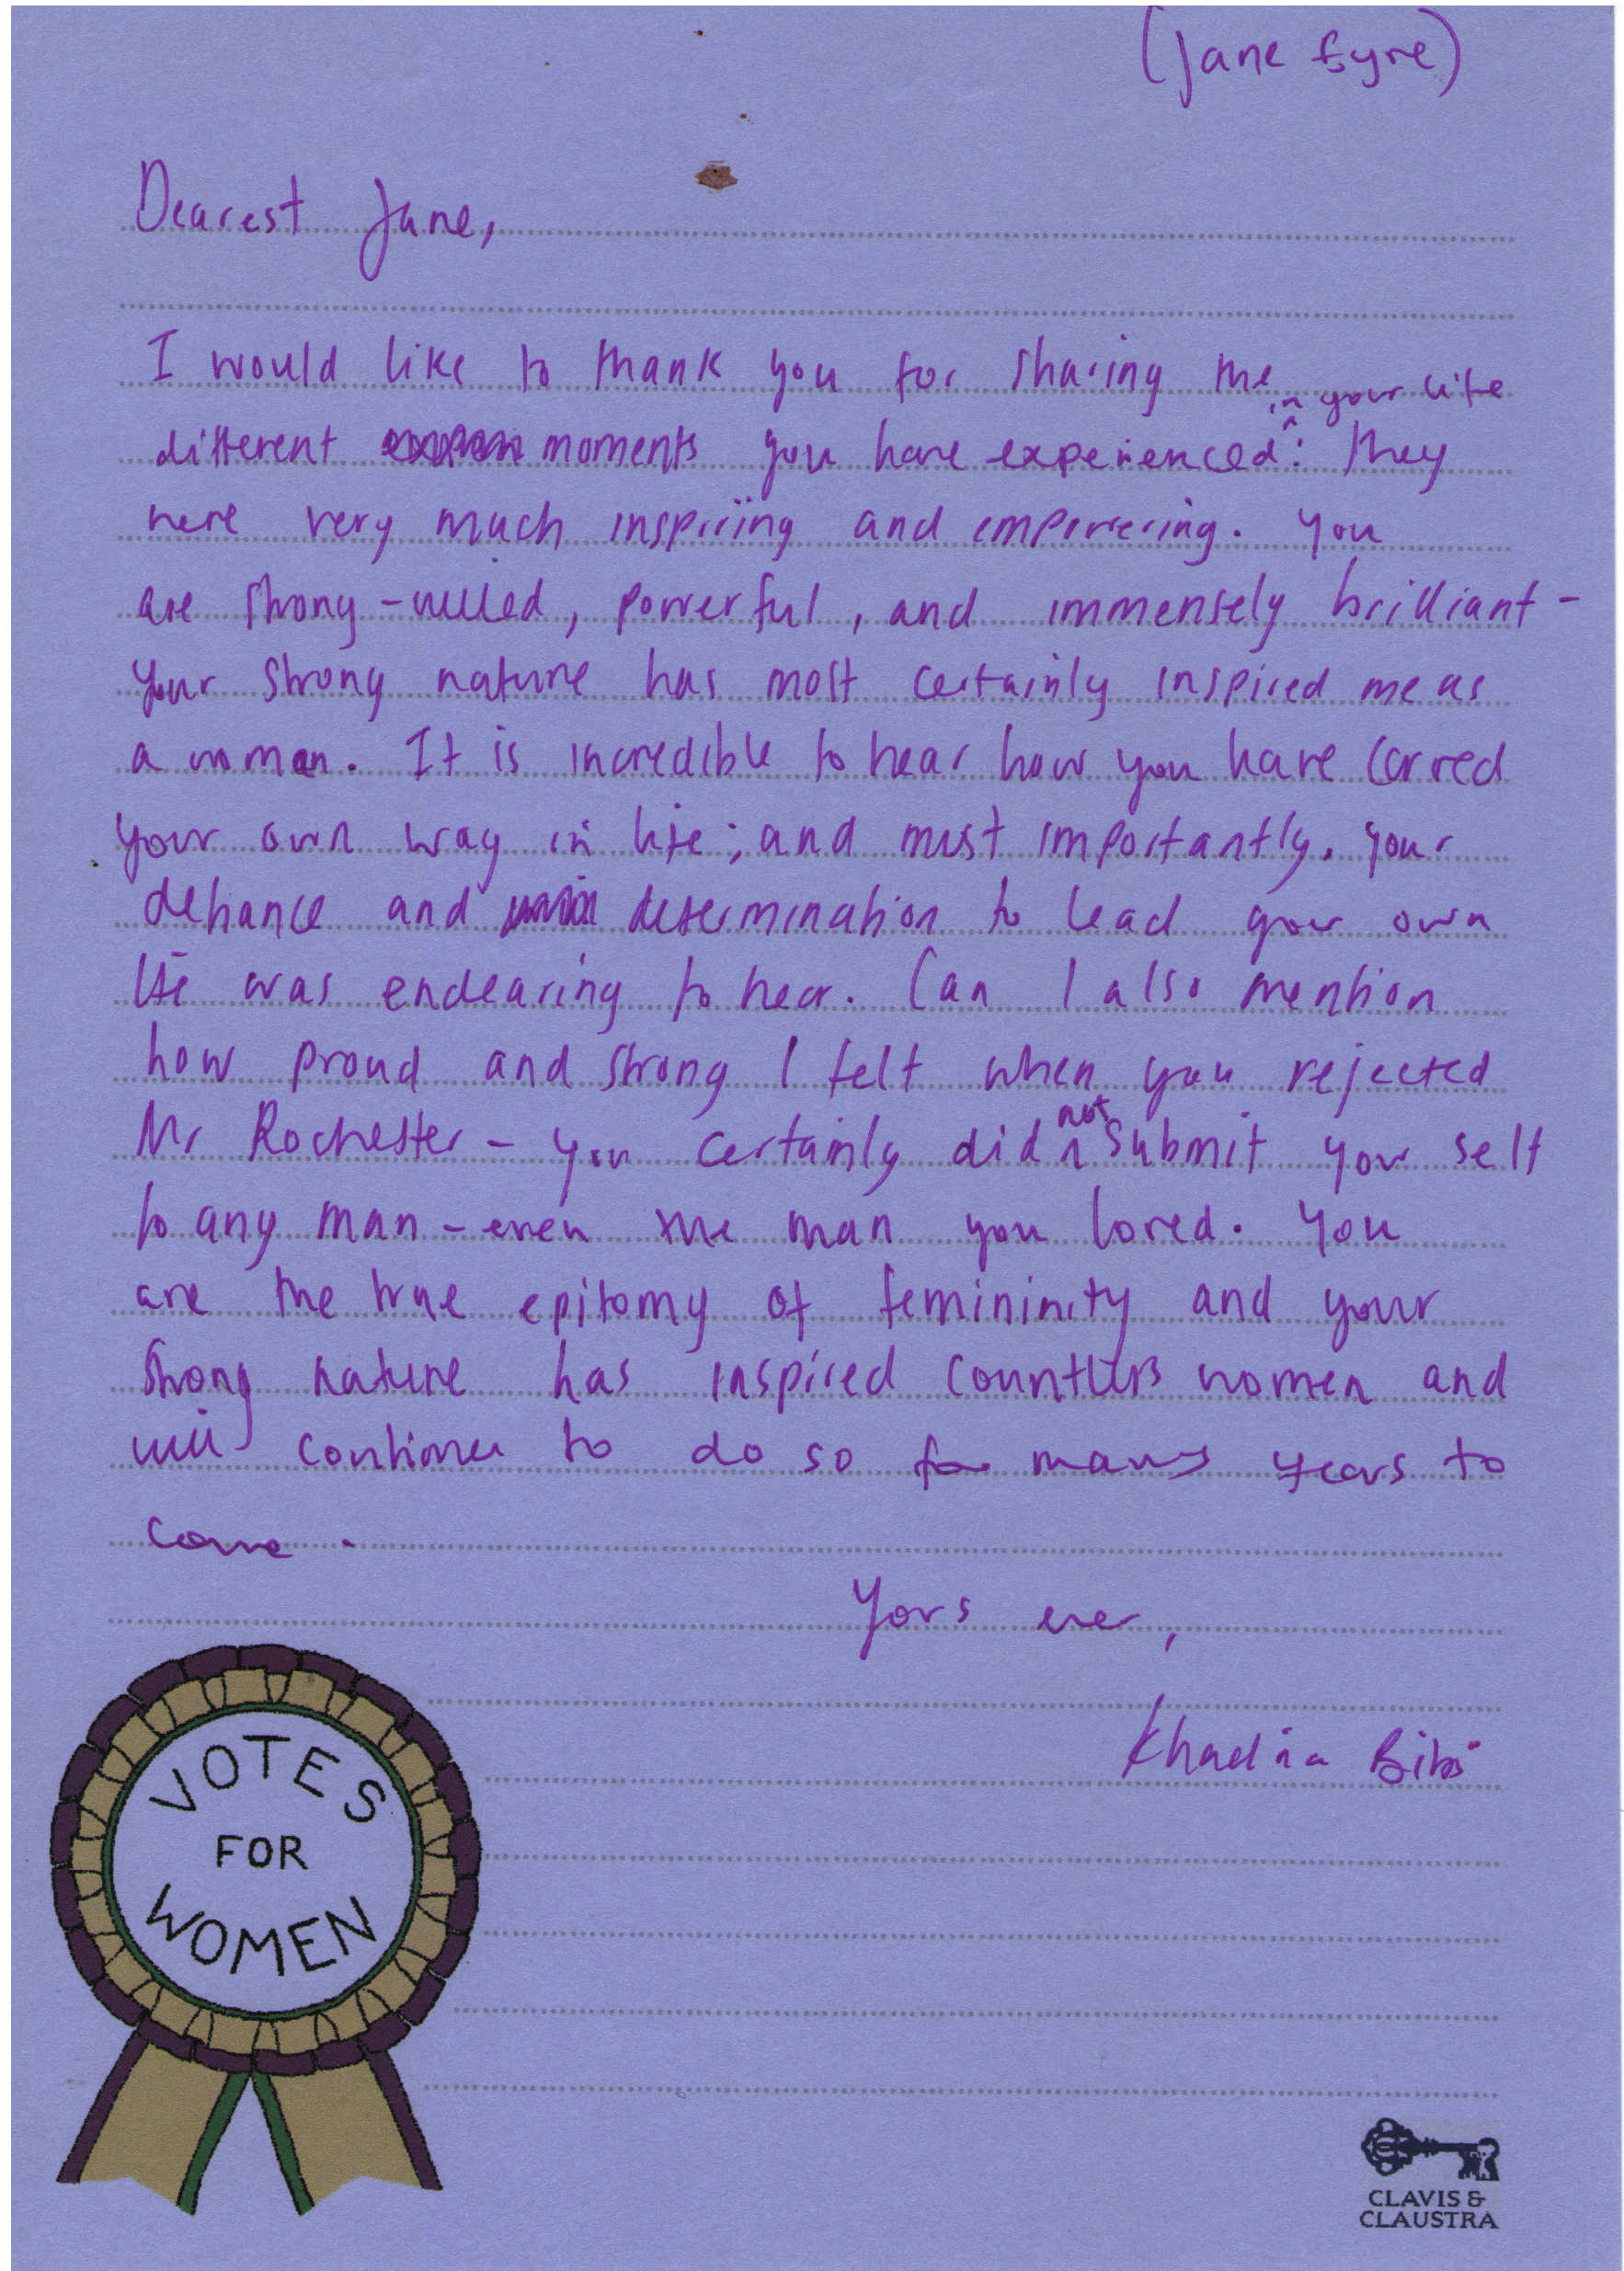 (Jane Eyre)
Dearest Jane,
I would like to thank you for sharing the
different moments you have experienced in your life. They
were very much inspiring and empowering. You
are strong-willed, powerful, and immensely brilliant -
your strong nature has most certainly inspired me as
a woman. It is incredible to hear how you have carved
your own way in life; and most importantly, your
defiance and determination to lead your own
life was endearing to hear. Can I also mention
how proud and strong I felt when you rejected
Mr Rochester - you certainly did not submit your self
to any man - even the man you loved. You
are the true epitomy of femininity and your
strong nature has inspired countless women and
will continue to do so for many years to
come.
Yours ever,
Bibi
VOTES
FOR
WOMEN
CLAVIS &
CLAUSTRA